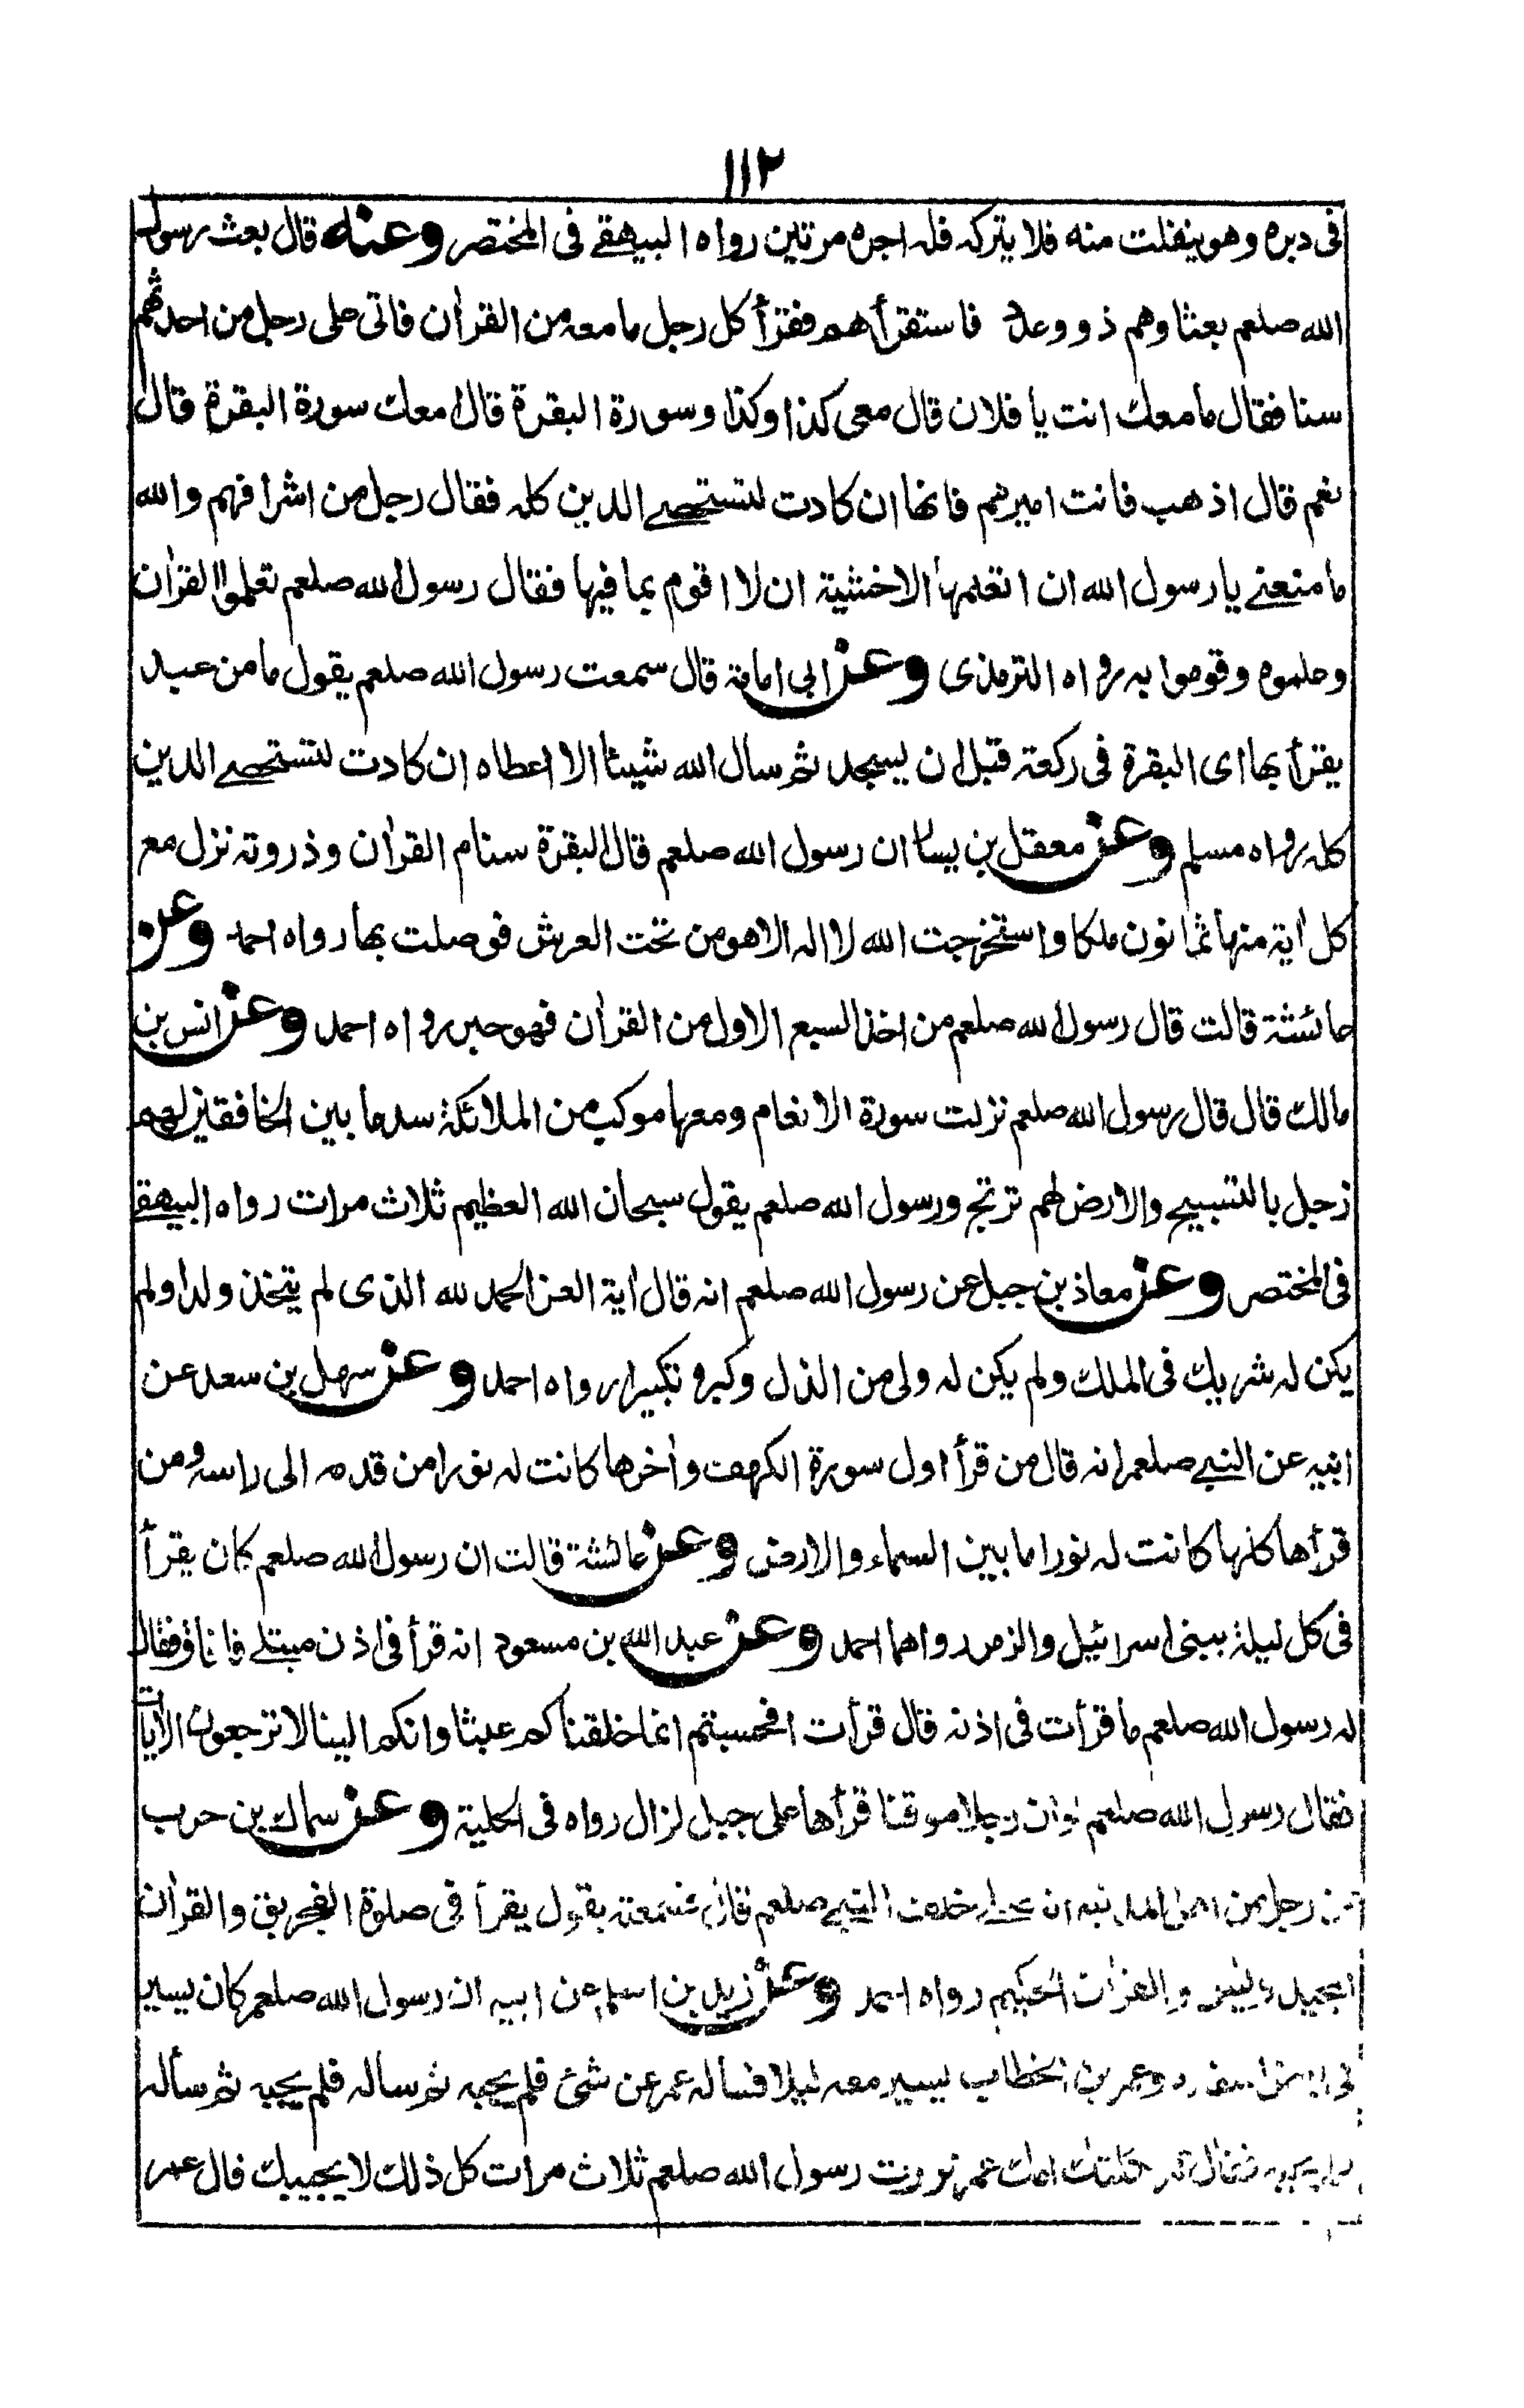 ١١٢
فى دبره وهو ينفلت منه فلا يتركه فله اجره مرتين رواه البيهقے فى المختصر وعنه قال بعث رسول
الله صلعم بعثا وهم ذو وعدد فاستقرأهم فقرأ كل رجل ما معه من القرأن فاتى على رجل من احدثهم
سنا فقال ما معك انت يا فلان قال معى كذا وكذا وسورة البقرة قال امعك سورة البقرة قال
نعم قال اذهب فانت اميرهم فانها ان كادت لتستحصے الدين كله فقال رجل من اشرافهم والله
ما منعنے يا رسول الله ان اتعلمها الا خشية ان لا اقوم بما فيها فقال رسول الله صلعم تعلموا القرأن
وعلموه وقوموا به رواه الترمذى وعن ابى امامة قال سمعت رسول الله صلعم يقول ما من عبد
يقرأ بها اى البقرة فى ركعة قبل ان يسجد ثم سال الله شيئا الا اعطاه ان كادت لتستحصے الدين
كله رواه مسلم وعن معقل بن يسار ان رسول الله صلعم قال البقرة سنام القرأن وذروته نزل مع
كل أية منها ثمانون ملكا واستخرجت الله لا اله الا هو من تحت العرش فوصلت بها رواه احمد وعن
عائشة قالت قال رسول الله صلعم من اخذ السبع الاول من القرأن فهو حبر رواه احمد وعن انس بن
مالك قال قال رسول الله صلعم نزلت سورة الانعام ومعها موكب من الملائكة سد ما بين الخافقين لهم
زجل بالتسبيح والارض لهم ترتج ورسول الله صلعم يقول سبحان الله العظيم ثلاث مرات رواه البيهقے
فى المختصر وعن معاذ بن جبل عن رسول الله صلعم انه قال أية العز الحمد لله الذى لم يتخذ ولدا ولم
يكن له شريك فى الملك ولم يكن له ولى من الذل وكبره تكبيرا رواه احمد وعن سهل بن سعد عن
ابيه عن النبے صلعم انه قال من قرأ اول سورة الكهف وأخرها كانت له نورا من قدمه الى راسه ومن
قرأها كلها كانت له نورا ما بين السماء والارض وعن عائشة قالت ان رسول الله صلعم كان يقرأ
فى كل ليلة ببنى اسرائيل والزمر رواهما احمد وعن عبد الله بن مسعود انه قرأ فى اذن مبتلے فافاق فقال
له رسول الله صلعم ما قرأت فى اذنه قال قرأت افحسبتم انما خلقناكم عبثا وانكم الينا لا ترجعون الأيات
فقال رسول الله صلعم لو ان رجلا موقنا قرأها على جبل لزال رواه فى الحلية وعن سماك بن حرب
عن رجل من اهل المدينة انه صلے خلف النبے صلعم قال فسمعته يقول يقرأ فى صلوة الفجر بق والقرأن
المجيد ويس والقرأن الحكيم رواه احمد وعن زيد بن اسلم عن ابيه ان رسول الله صلعم كان يسير
فى بعض اسفاره وعمر بن الخطاب يسير معه ليلا فسأله عمر عن شئ فلم يجبه ثم ساله فلم يجبه ثم سأله
فلم يجبه فقال ثكلتك امك عمر نزرت رسول الله صلعم ثلاث مرات كل ذلك لا يجيبك قال عمر